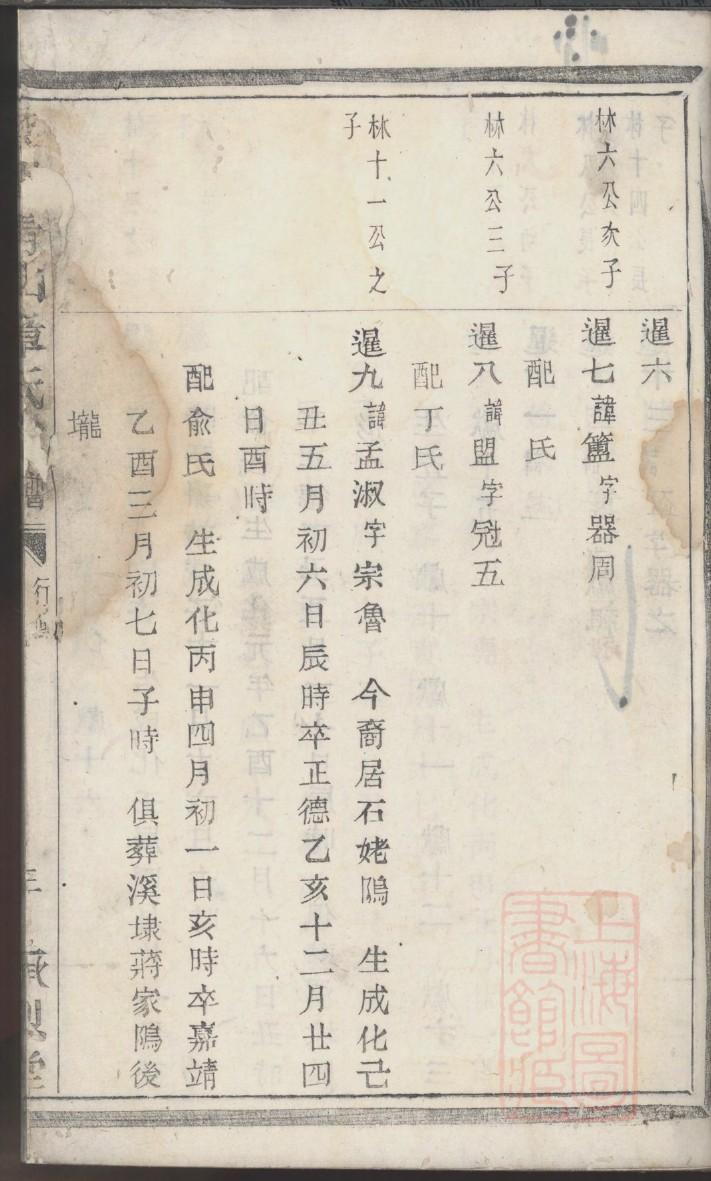 暹六
林六公次子
暹七諱簠字器周
配氏
林六公三子
暹八諱盟字冠五
配丁氏
林十一公之
子
暹九諱孟淑字宗魯　今裔居石姥隖　生成化己
丑五月初六日辰時卒正德乙亥十二月廿四
日酉時
配俞氏　生成化丙申四月初一日亥時卒嘉靖
乙酉三月初七日子時　俱葬溪埭蔣家隖後
壠
上海圖
書館藏